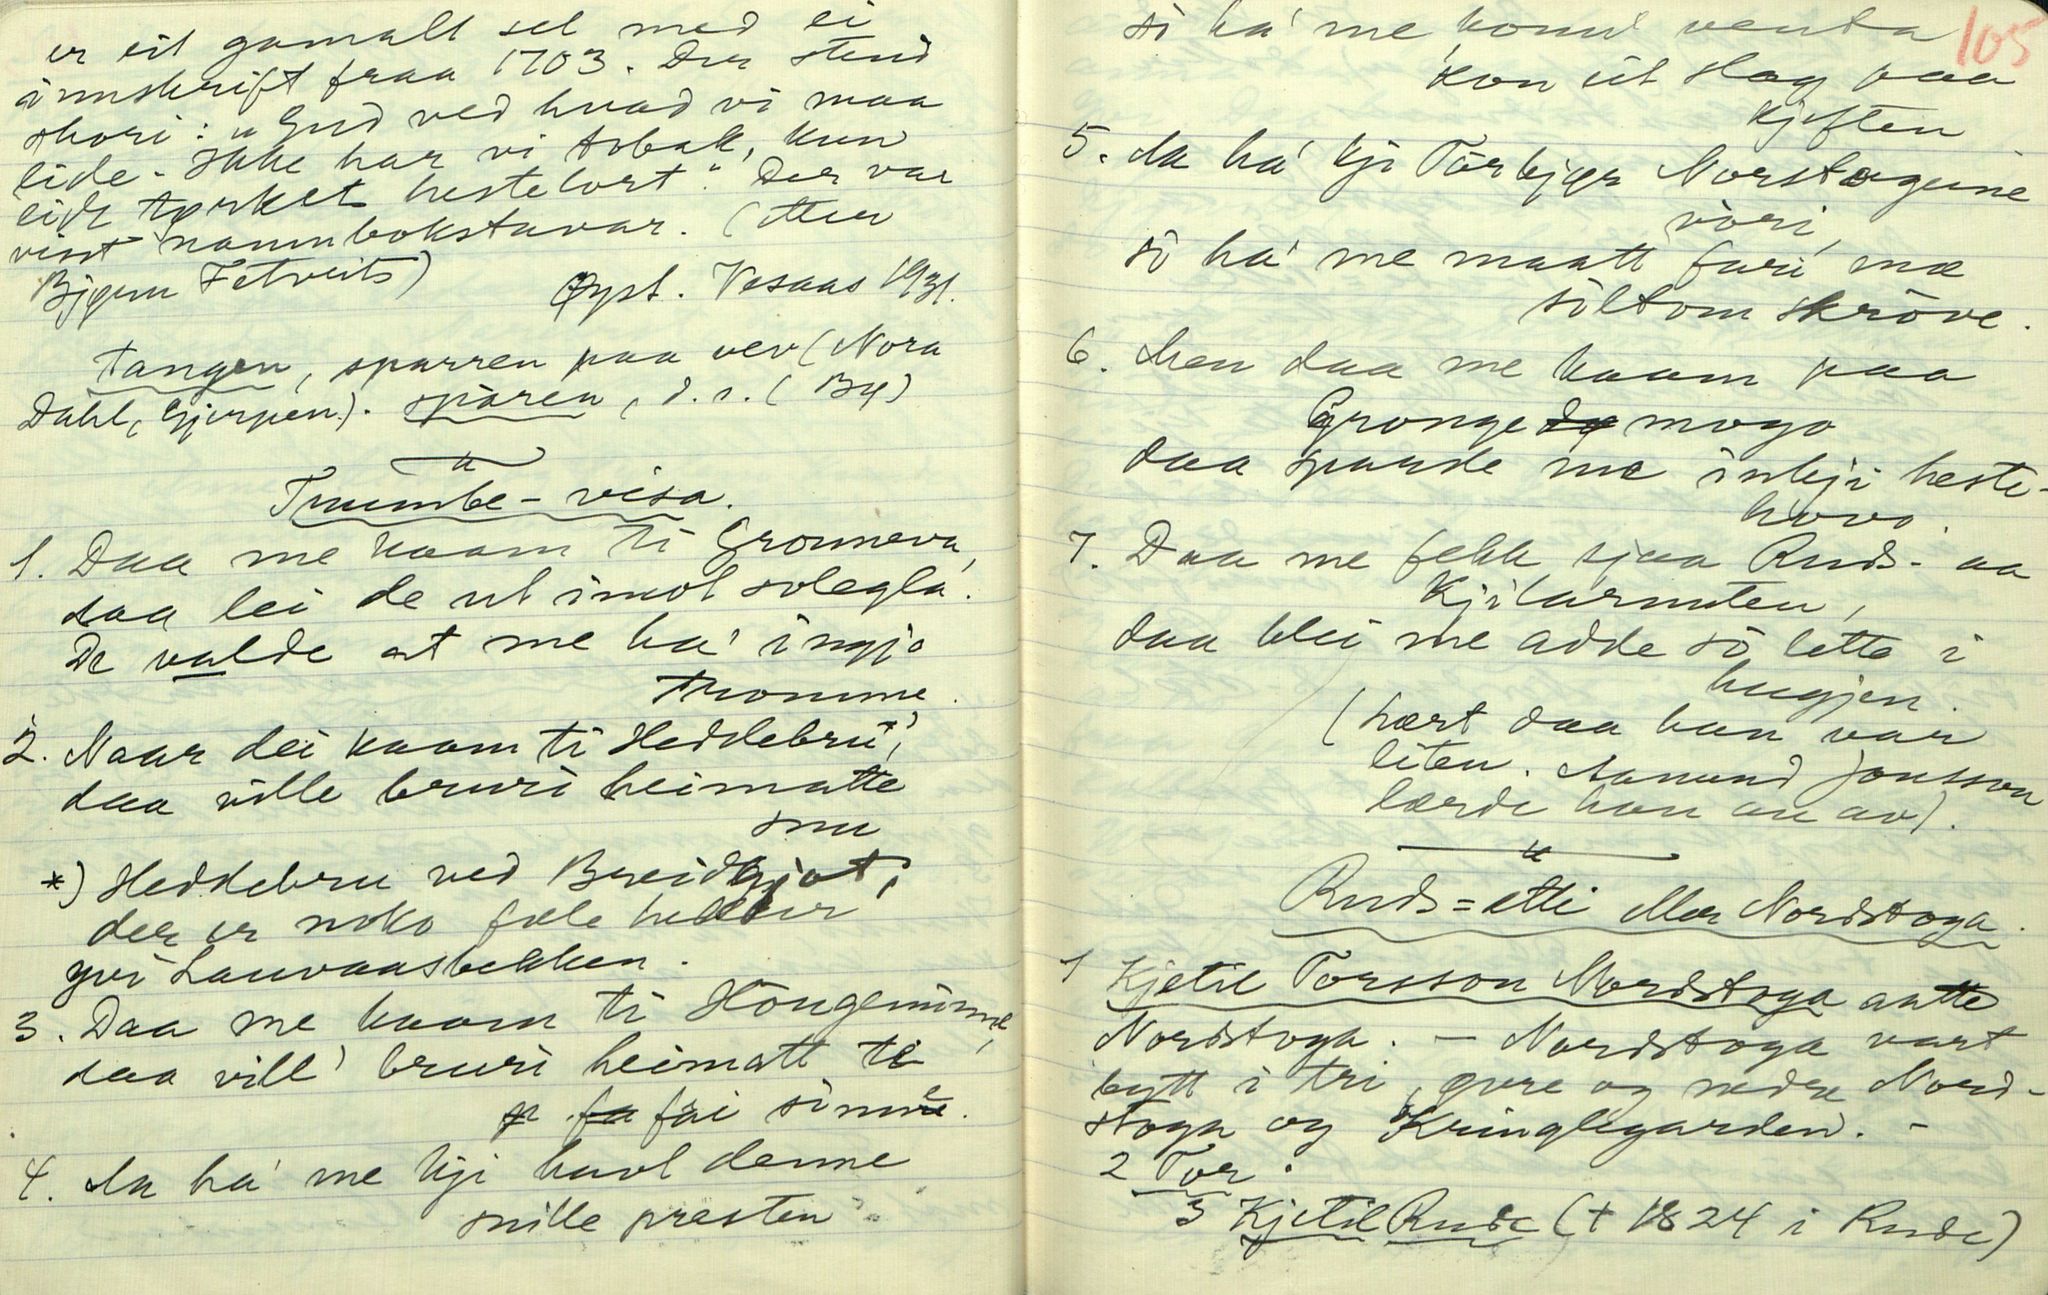 er eit gamalt sel med ei
innskrift fraa 1703. Der stend
skori: "Gud ved hvad vi maa
lide. Ikke har vi tobak, kun
lidt tørket hestelort". Der var
visst namnbokstavar. (Etter
Bjørn Fetveit)
Øyst. Vesaas 1931.
Tangen, sparren paa vev (Nora
Dahl, Gjerpen). sparen, d. s. (Bø)
Trumbe-visa.
1. Daa me kaam ti Gronneva,
daa lei de ut imot soleglá.
De valde at me ha' ingjo
tromme.
2. Naar dei kaam ti Heddebru *)
daa ville bruri heimatte
snu
*) Heddebru ved Breidgjot,
der er noko fæle
yvi Lauvaasbekken.
3. Daa me kaam ti Hongeminne,
daa vill' bruri heimatt ti
fai sinne.
4. Aa ha' me kji havt denne
snille presten
so ha' me konn' venta
kon eit slag paa
kjeften
5. Aa ha' kji Torbjør Norstogine
vori,
so ha' me maatt fari mæ
soltom skrove.
6. Men daa me kaam paa
Grongemogo
daa sparde me inkji heste-
hovo.
7. Daa me fekk sjaa Ruds- aa
Kjilarnuten,
daa blei me adde so lette i
hugjen.
(hært daa han var
liten. Aamund Jonsson
lærde han an av).
Ruds-ætti eller Nordstoga.
1 Kjetil Torsson Nordstoga aatte
Nordstoga. – Nordstoga vart
bytt i tri, øvre og nedre Nord-
stoga og Kringlegarden. –
2 Tor.
3 Kjetil Rude (+ 1824 i Rude)
105